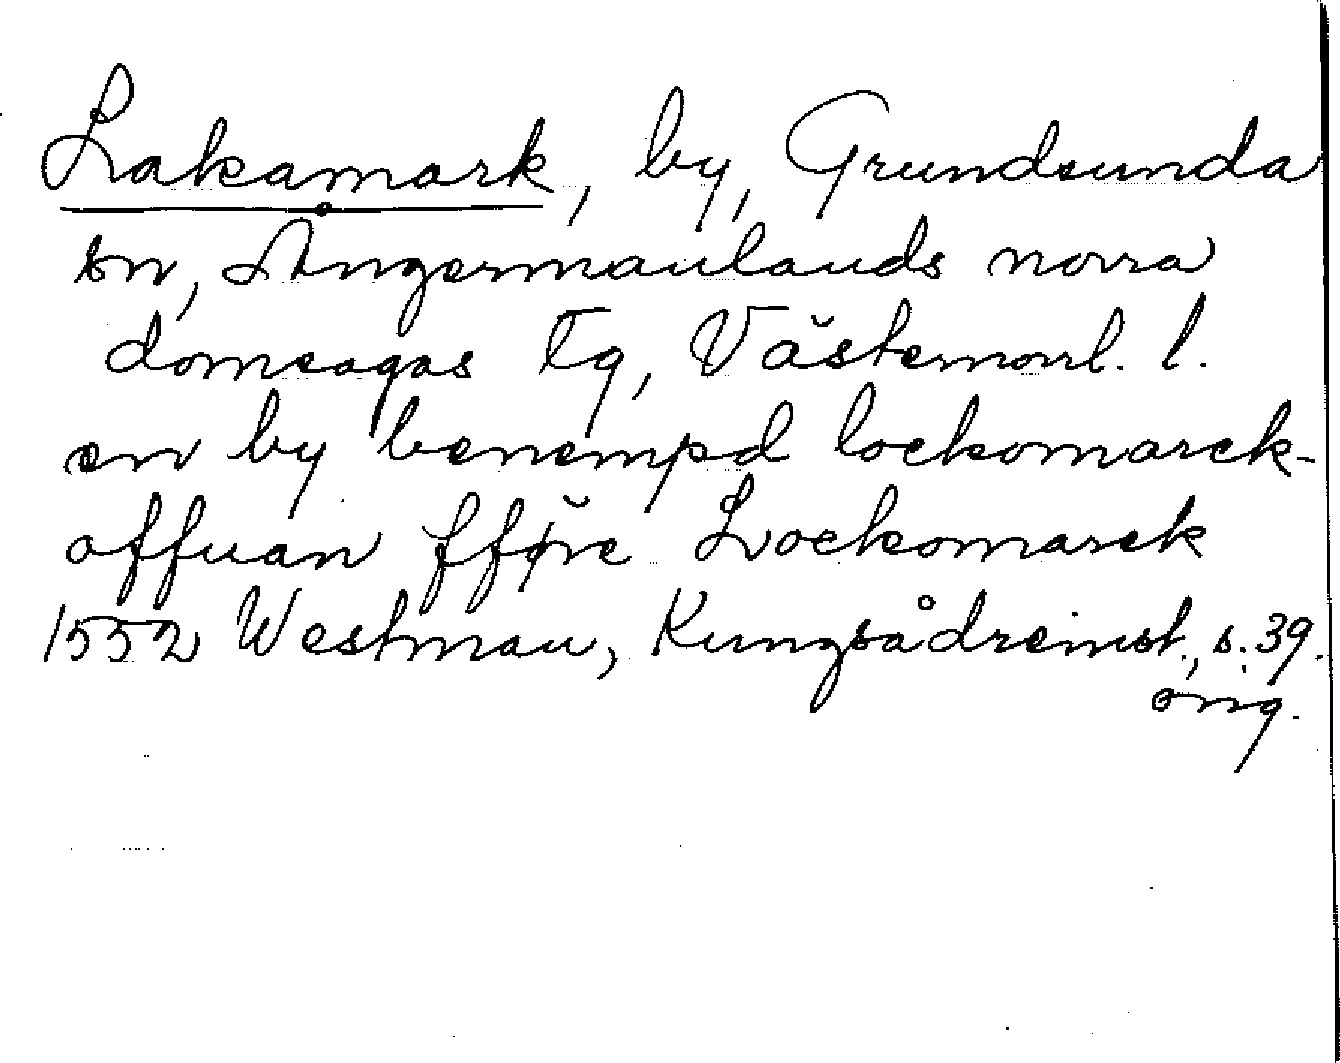 Lakamark, by, Grundsunda
sn, Ångermanlands norra
domsagas tg, Västernorrl. l.
en by benempd lockomarck-
offuan fføre Lockomarck
1552 Westman, Kungsådreinst., s. 39.
orig.